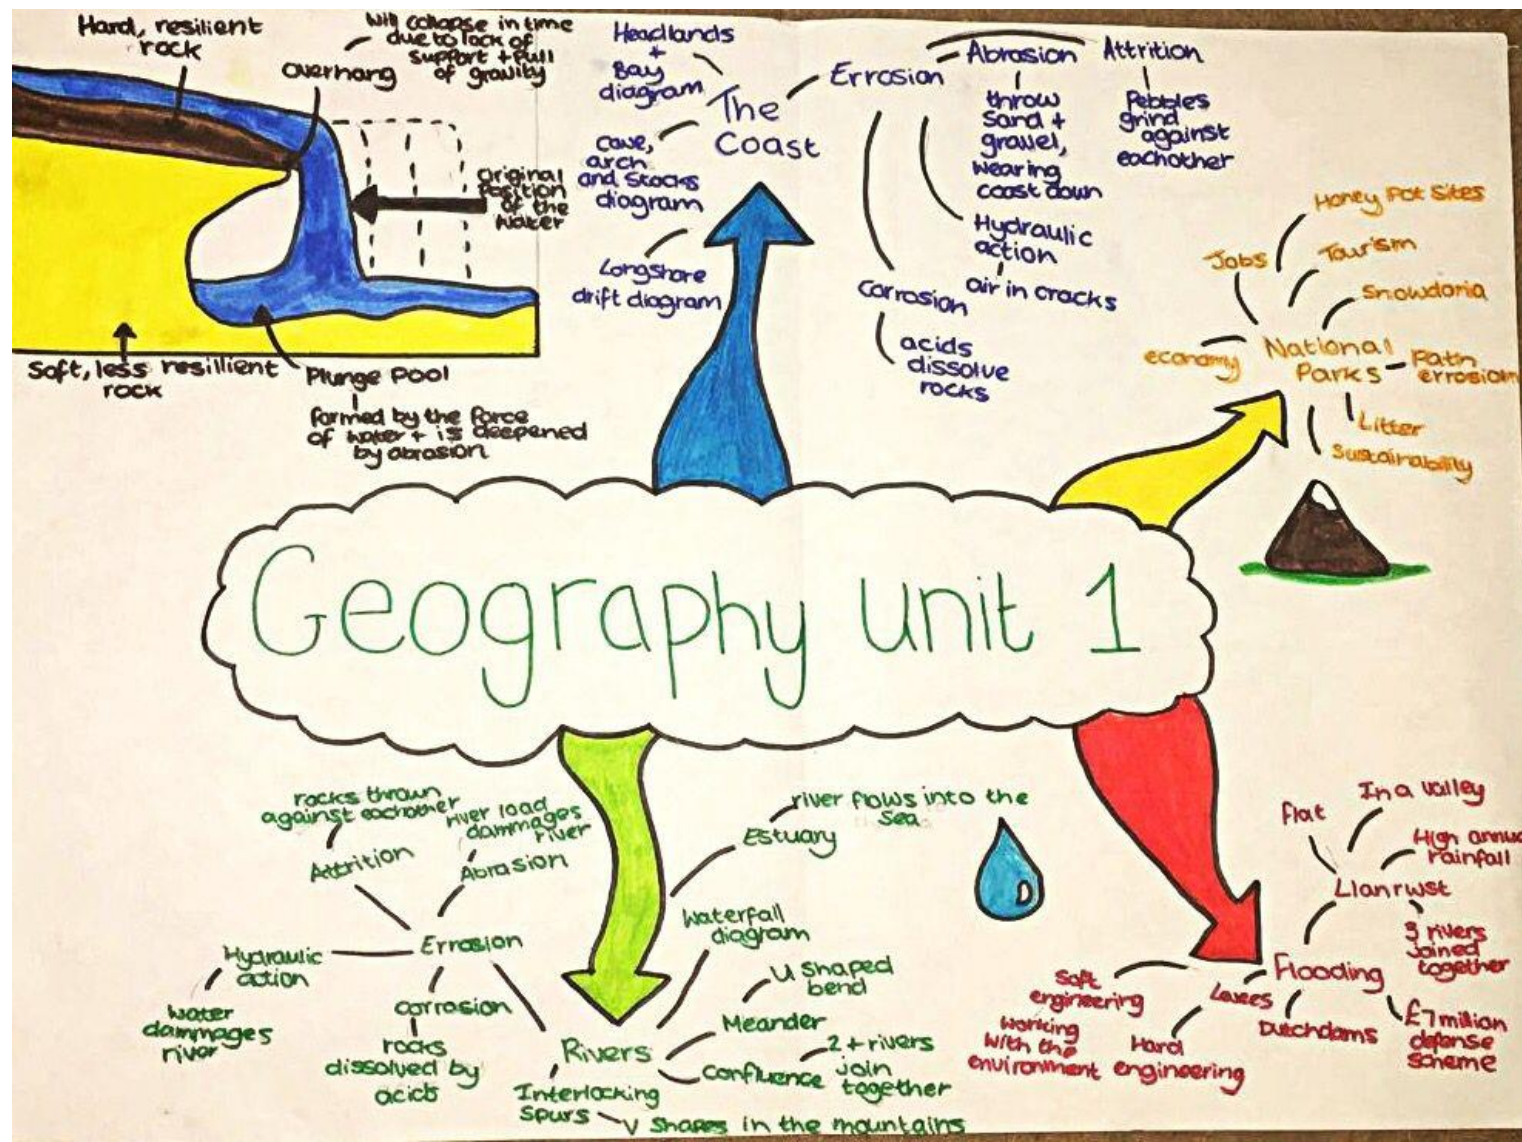 Hard, resilient
rock
Will collapse in time
due to lack of
support + pull
of gravity
overhang
original
position
of the
water
Soft, less resillient
rock
Plunge Pool
formed by the force
of water + is deepened
by abrasion
The
Coast
Headlands
+
Bay
diagram
cave,
arch
and stacks
diagram
Longshore
drift diagram
Errosion
Abrasion
throw
sand +
gravel,
wearing
coast down
Attrition
Pebbles
grind
against
eachother
Hydraulic
action
air in cracks
Corrosion
acids
dissolve
rocks
National
Parks
Honey Pot Sites
Jobs
Tourism
Snowdonia
economy
Path
errosion
Litter
Sustainability
Geography unit 1
rocks thrown
against eachother
Attrition
river load
dammages
river
Abrasion
Errosion
Hydraulic
action
water
dammages
river
corrosion
rocks
dissolved by
acids
Rivers
Estuary
river flows into the
Sea
Waterfall
diagram
U Shaped
bend
Meander
Confluence
2+ rivers
join
together
Interlocking
Spurs
V Shapes in the mountains
Flooding
Llanrwst
flat
In a valley
High annu
rainfall
3 rivers
joined
together
£7 million
defense
scheme
Dutchdams
Levees
Hard
engineering
Soft
engineering
Working
with the
environment